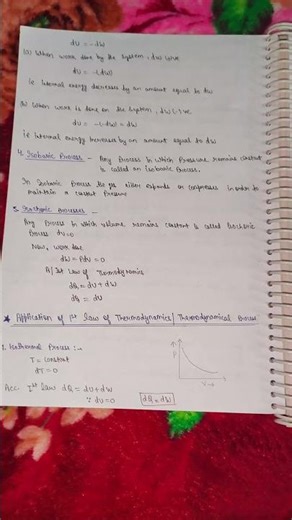 dU = -dW
(a) When work done by the system, dW is +ve
dU = -(dW)
i.e. internal energy decreases by an amount equal to dW
(b) When work is done on the system, dW (-)ve
dU = -(-dW) = dW
i.e internal energy increases by an amount equal to dW
4. Isobaric Process - Any Process in which Pressure remains constant
is called an Isobaric Process.
In Isobaric Process the gas either expands or compresses in order to
maintain a constant Pressure
5. Isochoric Processes -
Any Process in which volume remains constant is called Isochoric
Process dV=0
Now, work done
dW = PdV = 0
A/ Ist law of Thermodynamics
dQ = dU + dW
dQ = dU
* Application of Ist law of Thermodynamics / Thermodynamical Process
1. Isothermal Process :-
T = constant
dT = 0
P
V→
Acc Ist law dQ = dU + dW
∵ dU=0 dQ = dW